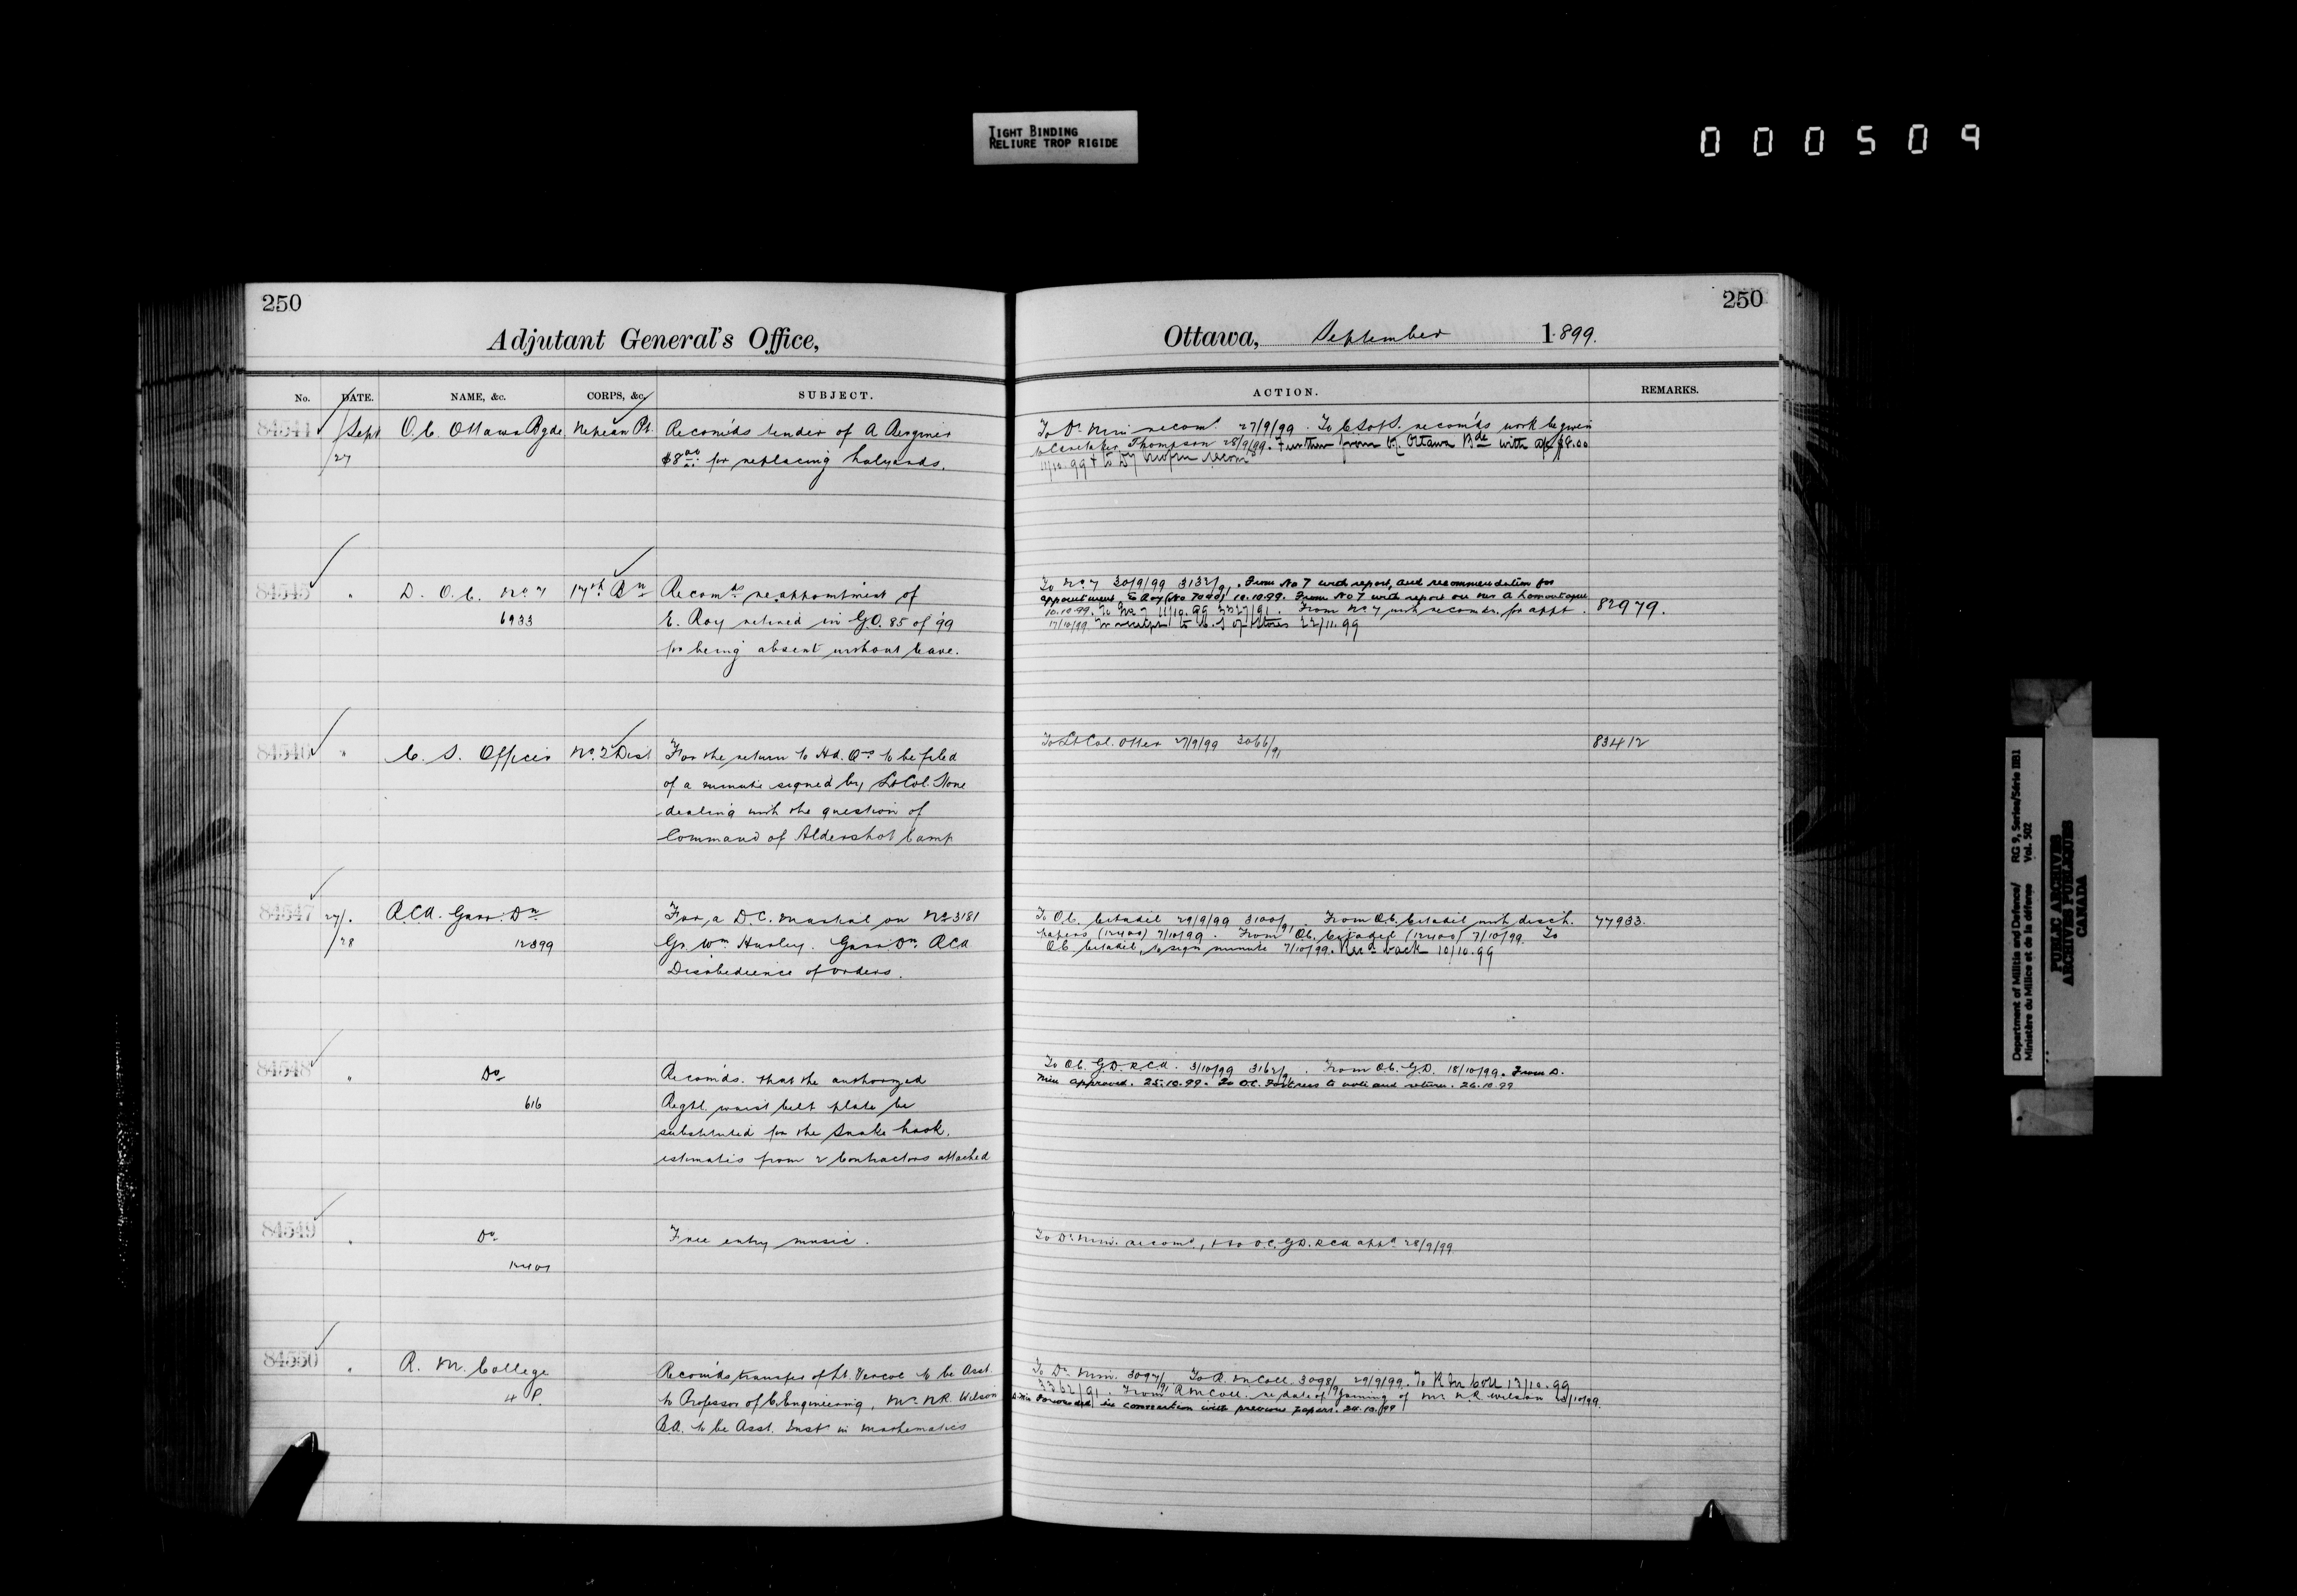 TIGHT BINDING
RELIURE TROP RIGIDE
000509
250
Adjutant General's Office,
No. DATE. NAME, &c. CORPS, &c. SUBJECT.
84544 Sept O.C. Ottawa Bgde. Nepean Pt. Recom'ds tender of A
/27 $8.00 for replacing halyards.
84545 " D. O. C. No 7 17th Bn Recomds reappointment of
6933 E. Roy retired in G.O. 85 of '99
for being absent without leave.
84546 " C. S. Officer No. 2 Dist For the return to Hd. Qrs to be filed
of a minute signed by Lt Col. Stone
dealing with the question of
Command of Aldershot Camp
84547 27/. R.C.A. Garr. Dn For a D.C. Martial on No 3181
/28 12399 Gr. Wm Hurley. Garr Dn RCA
Disobedience of orders.
84548 " Do Recom'ds. that the authorized
616 Regtl. waist belt plate be
substituted for the Snake hook.
estimates from 2 Contractors attached
84549 " Do Free entry music.
12401
84550 " R. M. College Recom'ds transfer of Lt. to be Asst.
4 P. to Professor of C. Engineering, Mr. N.R. Wilson
B.A. to be Asst. Inst in Mathematics
250
Ottawa, September 1899.
ACTION. REMARKS.
To Dr Min recomd. 27/9/99. To C.S. of S. recom'ds work be given
to Caretaker Thompson 28/9/99. Further from OC Ottawa Bde with a/c $8.00
11/10.99 + to recomd
To No 7 30/9/99 3132/91. From No 7 with report, and recommendation for
appointment E Roy (No 7040) 10.10.99. From No 7 with report on A Lamontagne
10.10.99. To No 7 11/10.99 3227/91. From No 7 with recomds. for appt. 82979.
17/10/99. to C. S of Stores 22/11.99
To Lt Col. Otter 27/9/99 3066/91 83412
To O.C. Citadel 29/9/99 3100/91. From O.C. Citadel with disch. 77933.
papers (12400) 7/10/99. From O.C. Citadel (12400) 7/10/99. To
O.C. Citadel, to sign minute 7/10/99. Recd back 10/10.99
To O.C. G.D. R.C.A. 3/10/99 3162/91. From O.C. G.D. 18/10/99. From D.
Min approved. 25.10.99. To O.C. Fortress to note and return. 26.10.99
To Dr. Min. recomd., & to O.C. G.D. RCA appd 28/9/99
To Dr Min. 3097/91 To R.M Coll. 3098/91 29/9/99. To R M Coll 17/10.99
3362/91. From R M Coll. re date of joining of Mr. N R Wilson /10/99.
D. Min Forwarded in connection with previous papers. 24.10.99
Department of Militia and Defence/ RG 9, Series/Série IIB1
Ministère du Milice et de la défense Vol. 502
PUBLIC ARCHIVES
ARCHIVES PUBLIQUES
CANADA